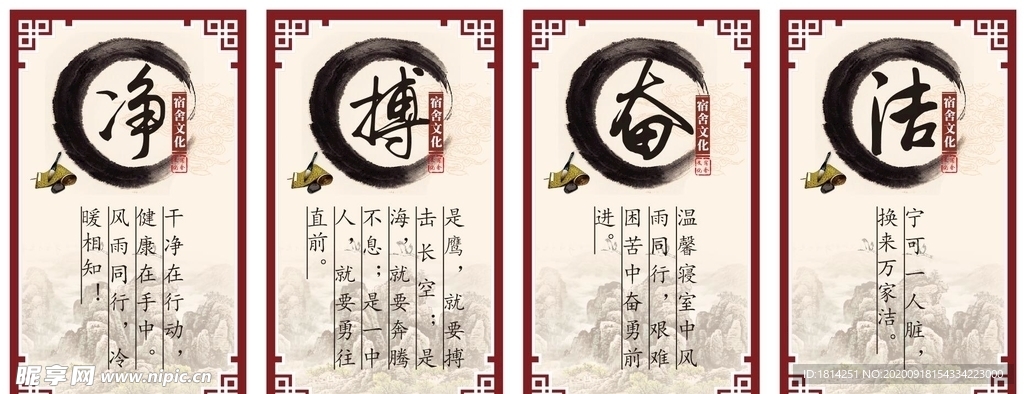 净
宿舍文化
干净在行动，
健康在手中。
风雨同行，冷
暖相知！
搏
宿舍文化
是鹰，就要搏
击长空；是
海就要奔腾
不息；是一中
人，就要勇往
直前。
奋
宿舍文化
温馨寝室中风
雨同行，艰难
困苦中奋勇前
进。
洁
宿舍文化
宁可一人脏，
换来万家洁。
昵享网 www.nipic.cn
ID:1814251 NO:20200918154334223000